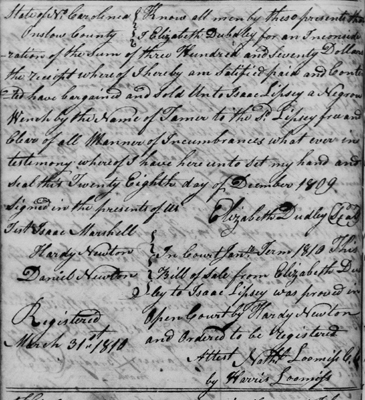 State of No. Carolina } Know all men by these presents that
Onslow County } I Elizabeth Dudley for an in Consideration
ration of the Sum of three Hundred and Twenty Dollars
the receipt where of I hereby am Satisfied paid and Conten
ted have bargained and Sold Unto Isaac Lipsey a Negroe
Wench by the Name of Tamer to the Sd. Lipsey free and
Clear of all Manner of Incumbrances what ever in
testimony where of I have here unto Set my hand and
Seal this Twenty Eighth day of December 1809
Signed in the presents of us
Elizabeth Dudley (Seal)
Test Isaac Marshall
Hardy Newton
Daniel Newton
In Court Jany. Term 1810 This
Bill of Sale from Elizabeth Du
ley to Isaac Lipsey was proved in
Open Court by Hardy Newton
and Ordered to be registered
Attest Nathl. Loomiss
by Harris Loomiss
Registered
March 31st 1810